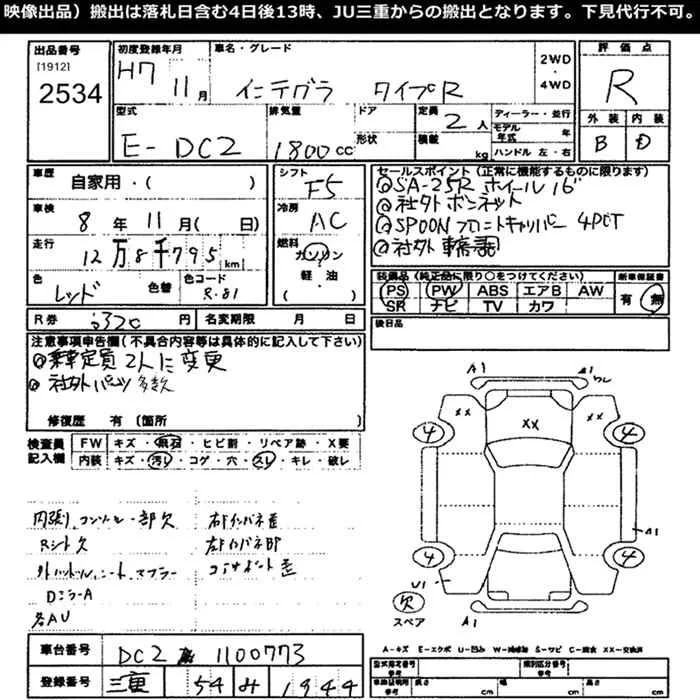 映像出品）搬出は落札日含む4日後13時、JU三重からの搬出となります。下見代行不可。
出品番号
[1912]
2534
初度登録年月
H7 11月
車名・グレード
インテグラ タイプR
2WD
・
4WD
評価点
R
型式
E-DC2
排気量
1800cc
ドア
形状
定員
2人
積載
kg
ディーラー・並行
モデル年式 年
ハンドル 左・右
外装
B
内装
D
車歴
自家用・( )
車検
8年 11月( 日)
走行
12万8千795km
色
レッド
色替
色コード
R-81
シフト
F5
冷房
AC
燃料
ガソリン
軽・油
( )
セールスポイント(正常に機能するものに限ります)
SA-25R ホイール 16"
社外ボンネット
SPOON フロントキャリパー 4POT
社外
装備品(純正品に限り○をつけてください)
PS PW ABS エアB AW
SR ナビ TV カワ
新車保証書
有 無
後日品
R券 円
名変期限 月 日
注意事項申告欄(不具合内容等は具体的に記入して下さい)
乗車定員 2人に変更
社外パーツ多数
修復歴 有(箇所 )
検査員記入欄
FW キズ・飛石・ヒビ割・リペア跡・X要
内装 キズ・汚れ・コゲ・穴・スレ・キレ・破レ
一部欠
右Fインパネ歪
Rシート欠
左Fインパネ
マフラー
コアサポート歪
DミラーA
各AU
A1
A1
XX
XX
XX
4
4
4
4
A1
U1
欠
スペア
A1
A-キズ E-エクボ U-凹み W-補修跡 S-サビ C-腐食 XX-交換済
車台番号
DC2 1100773
登録番号
三重 54 み 1944
型式指定番号
類別区分番号
長さ cm
幅 cm
高さ cm